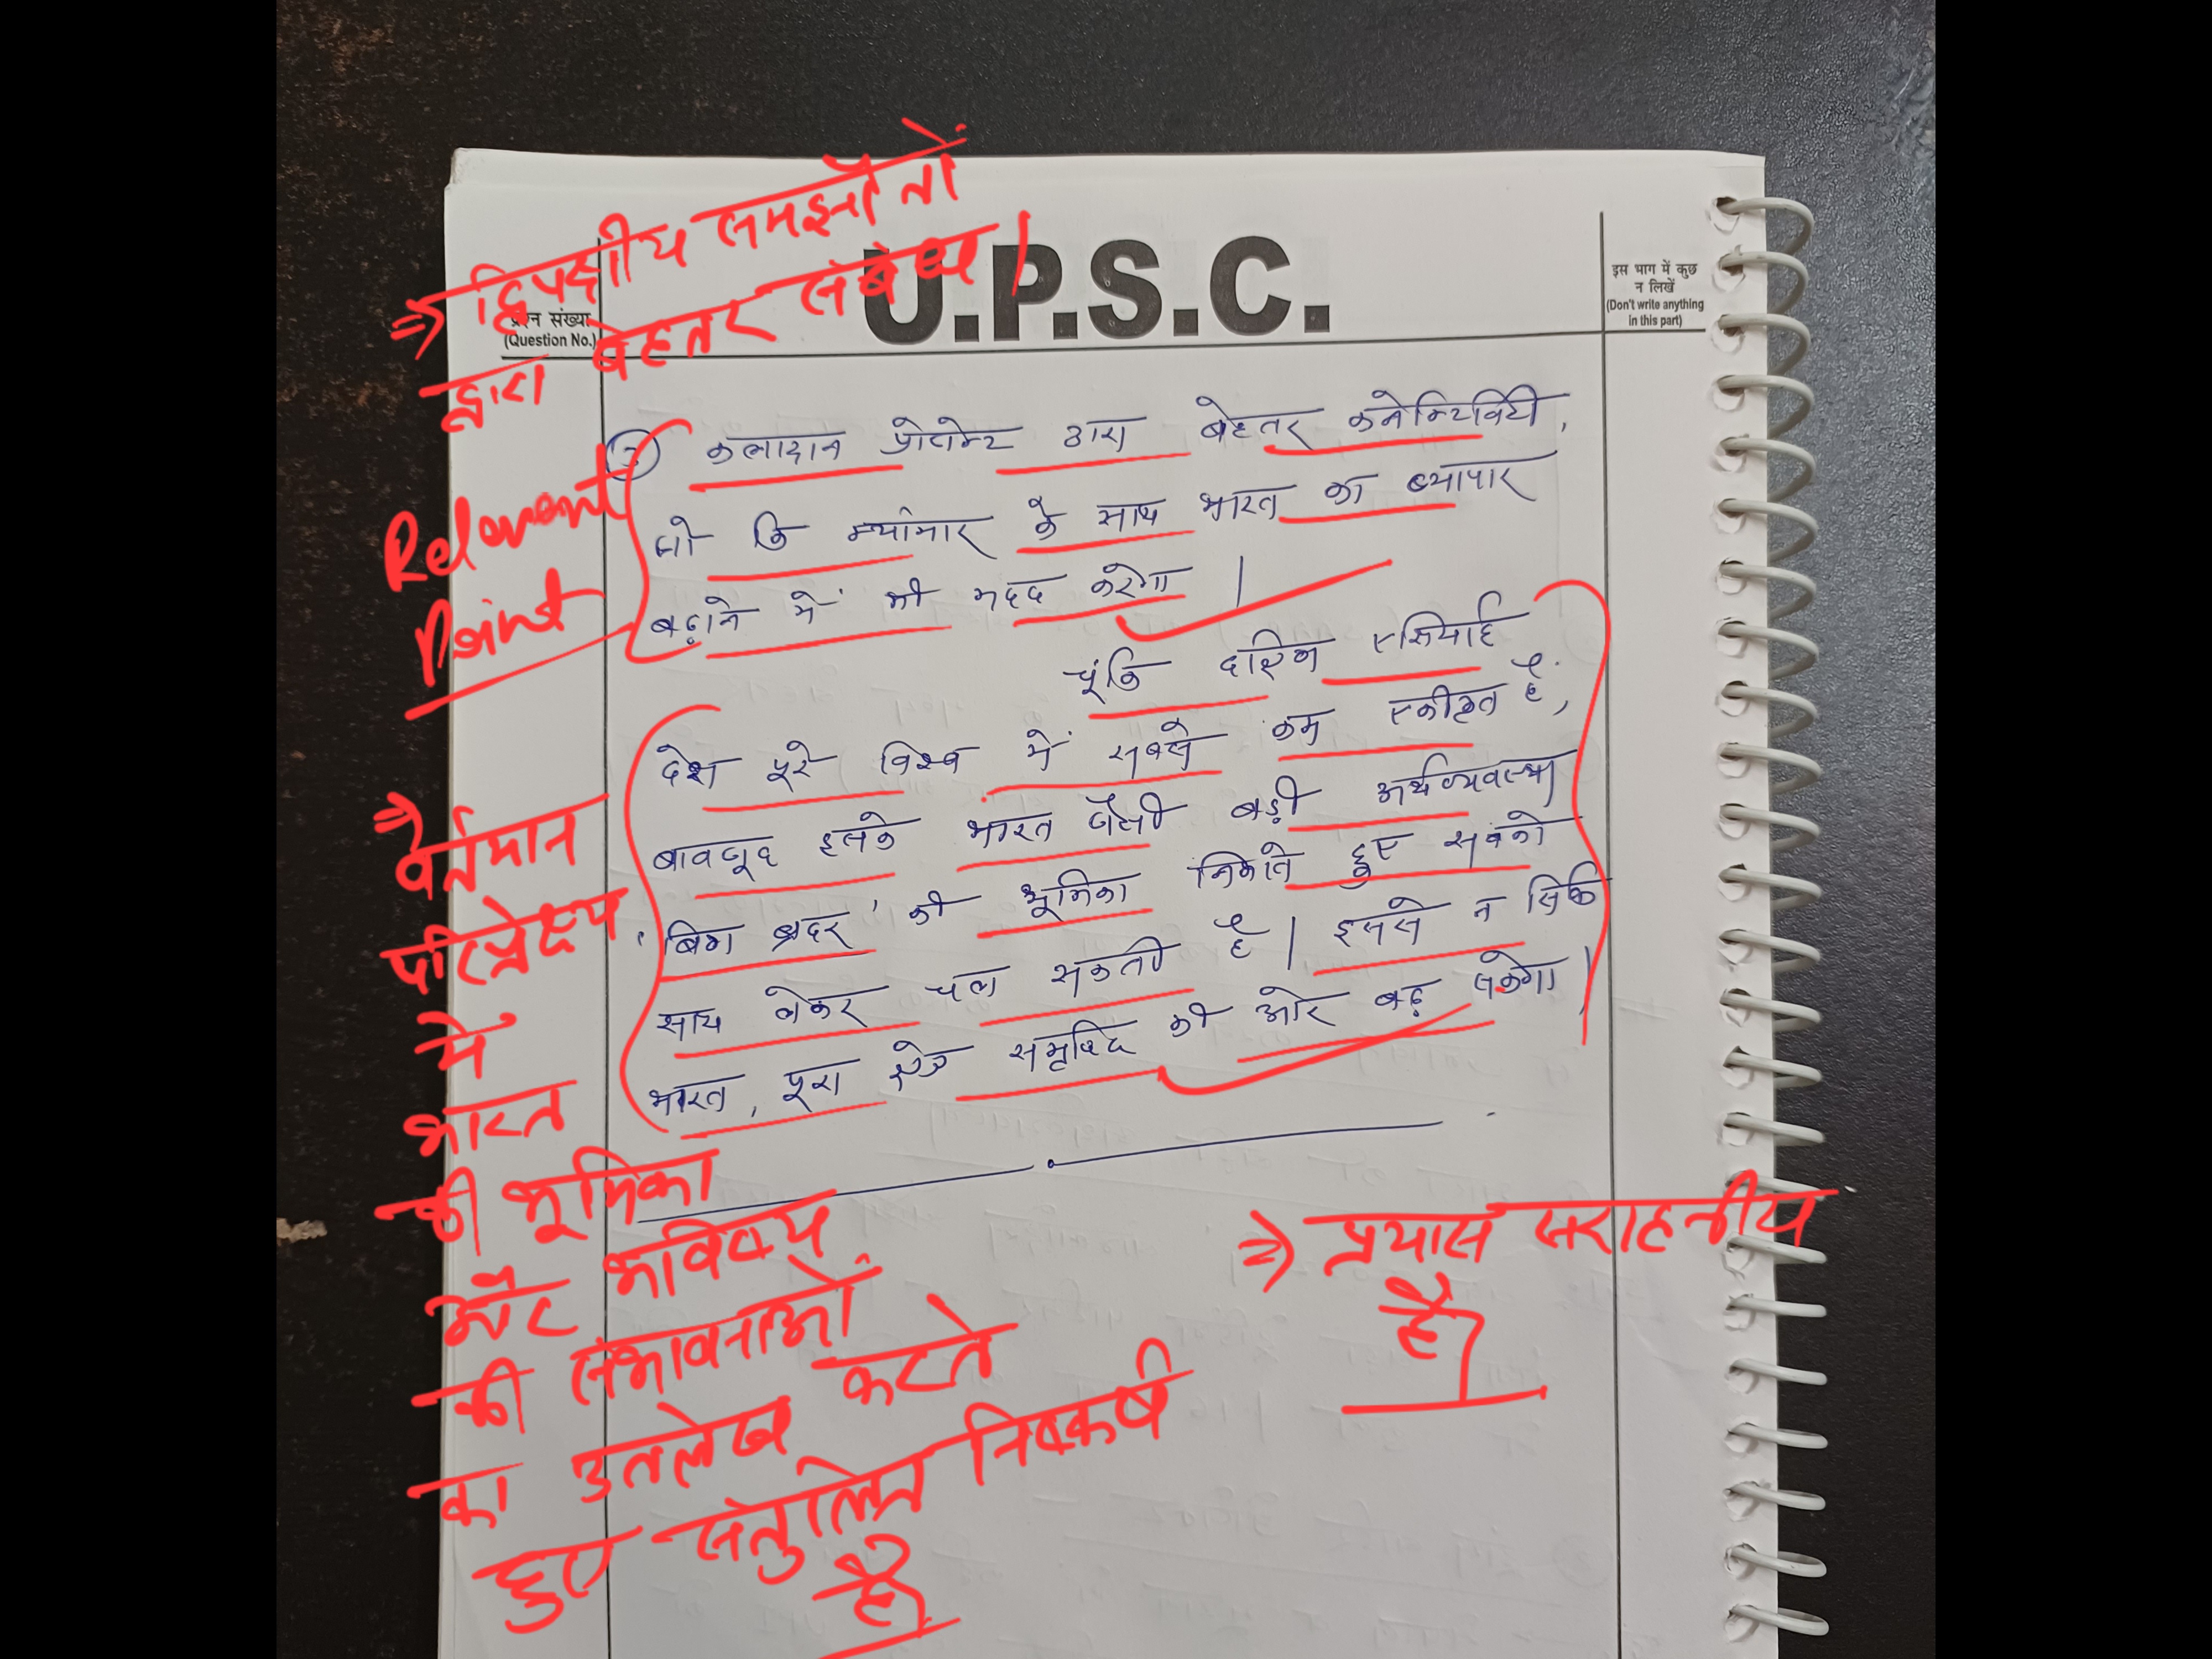 ⇒ द्विपक्षीय समझौतों
द्वारा बेहतर संबंध।
U.P.S.C.
प्रश्न संख्या
(Question No.)
इस भाग में कुछ
न लिखें
(Don't write anything
in this part)
Relevant
Point
कलादान प्रोजेक्ट द्वारा बेहतर कनेक्टिविटी,
जो कि म्यांमार के साथ भारत का व्यापार
बढ़ाने में भी मदद करेगा।
चूंकि दक्षिण एशियाई
देश पूरे विश्व में सबसे कम एकीकृत है,
बावजूद इसके भारत जैसी बड़ी अर्थव्यवस्था
'बिग ब्रदर' की भूमिका निभाते हुए सबको
साथ लेकर चल सकती है। इससे न सिर्फ
भारत, पूरा क्षेत्र समृद्धि की ओर बढ़ सकेगा।
⇒
वर्तमान
परिप्रेक्ष्य
में
भारत
की भूमिका
और भविष्य
की संभावनाओं
का उल्लेख करते
हुए संतुलित निष्कर्ष
है।
⇒ प्रयास सराहनीय
है।